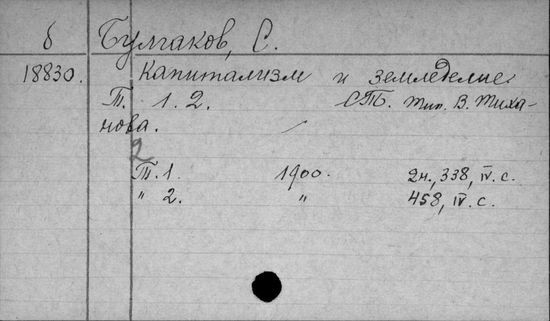 б Булгаков, С.
18830. Капитализм и земледелие.
Т. 1. 2. СПб. Тип. В. Тиха-
нова.
2
Т. 1. 1900. 2н., 338, IV. с.
" 2. " 458, IV. с.